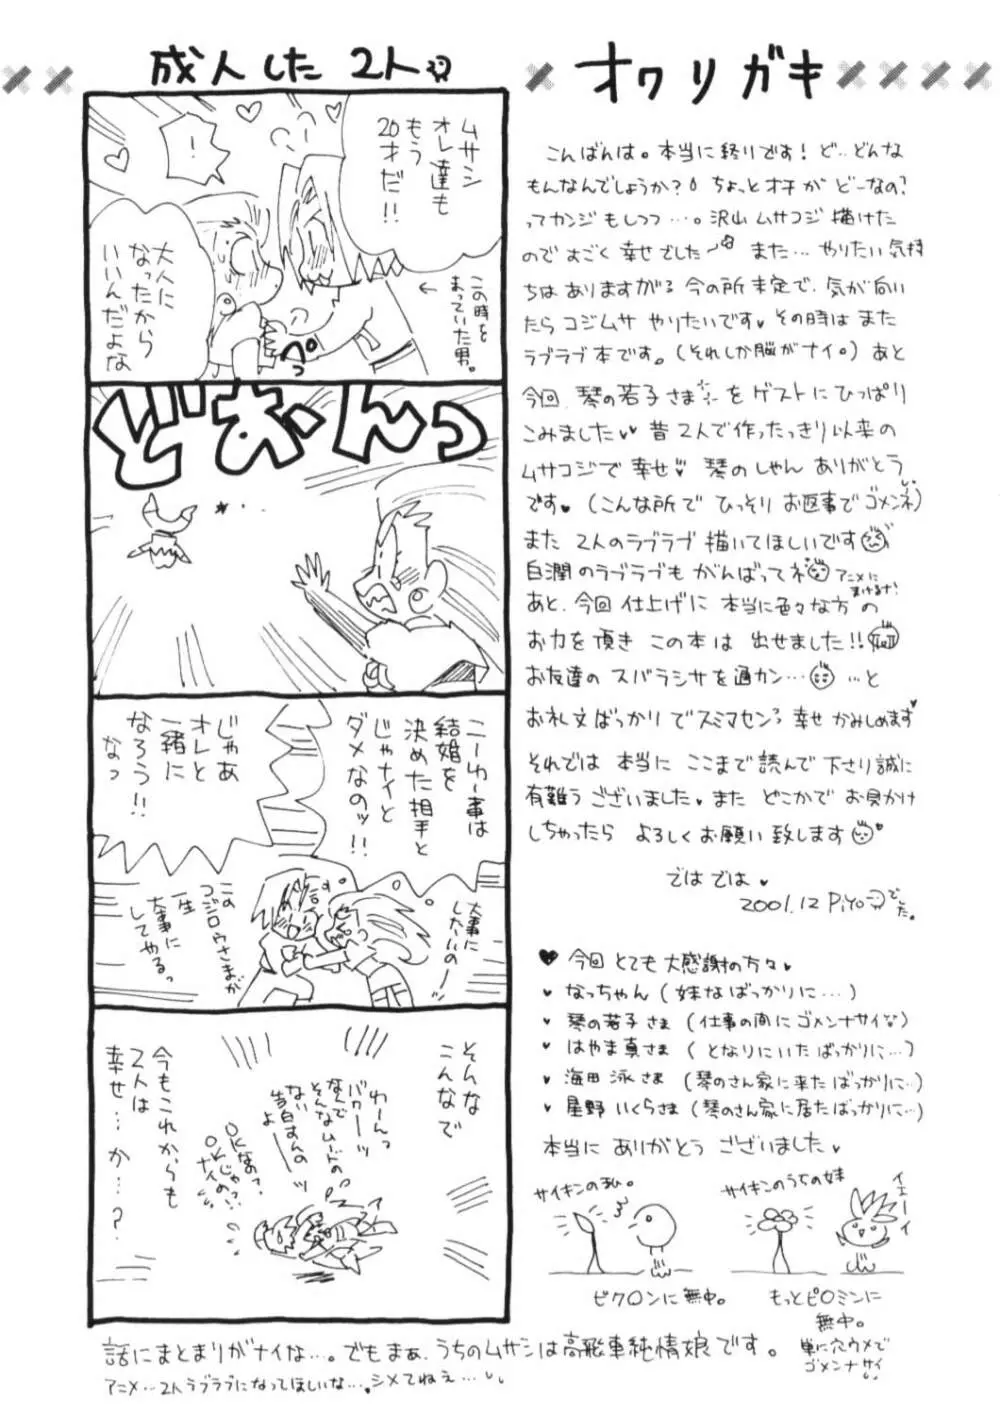 成人した 2人
ムサシ
オレ達も
もう
20才だ!!
!
大人に
なったから
いいんだよな
この時を
まっていた男。
ぺっ
どおーんっ
こーゆー事は
結婚を
決めた相手と
じゃナイと
ダメなのッ!!
じゃあ
オレと
一緒に
なろう!!
なっ
大事に
したいのーー
この
コジロウさまが
一生
大事に
してやるっ
そんな
こんなで
わーんっ
バカーーッ
なんで
そんなムードのっ
ない
告白すんの
よーー
OKなの?
OKじゃ
ナイの!?
今もこれからも
2人は
幸せ…か…?
オワリガキ
こんばんは。本当に終りです! ど‥どんな
もんなんでしょうか? ちょっとオチが どーなの?
ってカンジもしつつ…。沢山 ムサコジ 描けた
ので すごく 幸せでした また… やりたい気持
ちは ありますが 今の所 未定で、気が向い
たら コジムサ やりたいです♥ その時は また
ラブラブ本です。(それしか脳がナイ。) あと
今回、琴の若子さま を ゲストに ひっぱり
こみました♥♥ 昔 2人で作ったっきり以来の
ムサコジで 幸せ♥ 琴のしゃん ありがとう
です♥ (こんな所で ひっそり お返事で ゴメンネ)
また 2人のラブラブ 描いてほしいです
白潤のラブラブも がんばってネ アニメに
まけるな!
あと、今回 仕上げに 本当に色々な方の
お力を頂き この本は 出せました!!
お友達の スバラシサを 通カン… …と
お礼文ばっかり でスミマセン 幸せ かみしめます♥
それでは 本当に ここまで 読んで 下さり 誠に
有難う ございました♥ また どこかで お見かけ
しちゃったら よろしく お願い 致します♥
では では♥
2001.12 Piyo でした。
♥ 今回 とても 大感謝の方々♥
♥ なっちゃん (妹なばっかりに…)
♥ 琴の若子さま (仕事の間にゴメンナサイ)
♥ はやま真さま (となりにいたばっかりに…)
♥ 海田 泳さま (琴のさん家に来たばっかりに…)
♥ 星野 いくらさま (琴のさん家に居たばっかりに…)
本当に ありがとう ございました♥
サイキンの私。
サイキンのうちの妹
イエーイ
ピク○ンに無中。
もっとピ○ミンに
無中。
単に穴ウメで
ゴメンナサイ
話にまとまりがナイな…。でもまぁ、うちのムサシは高飛車純情娘です。
アニメ…2人ラブラブになってほしいな…。シメてねぇ…